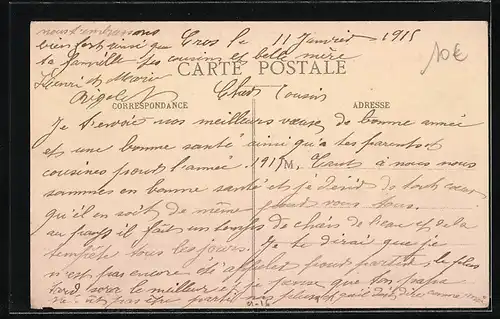 nous t'embrassons
bien fort ainsi que Cros le 11 Janvier 1915
ta famille tes cousins et belle mère
Henri et Marie
10€
CARTE POSTALE
Cher Cousin
CORRESPONDANCE
ADRESSE
Je t'envoie nos meilleurs vœux de bonne année
et une bonne santé ainsi qu'a tes parents et
cousines pour l'année 1915 M. Tant à nous nous
sommes en bonne santé et je désire de tout cœur
qu'il en soit de même pour vous tous.
au pays il fait un temps de chien de l'eau et de la
tempête tous les jours. Je te dirai que je
n'est pas encore été appeler pour partir, le plus
tard sera le meilleur et je pense que ton papa
ne est pas être parti non plus